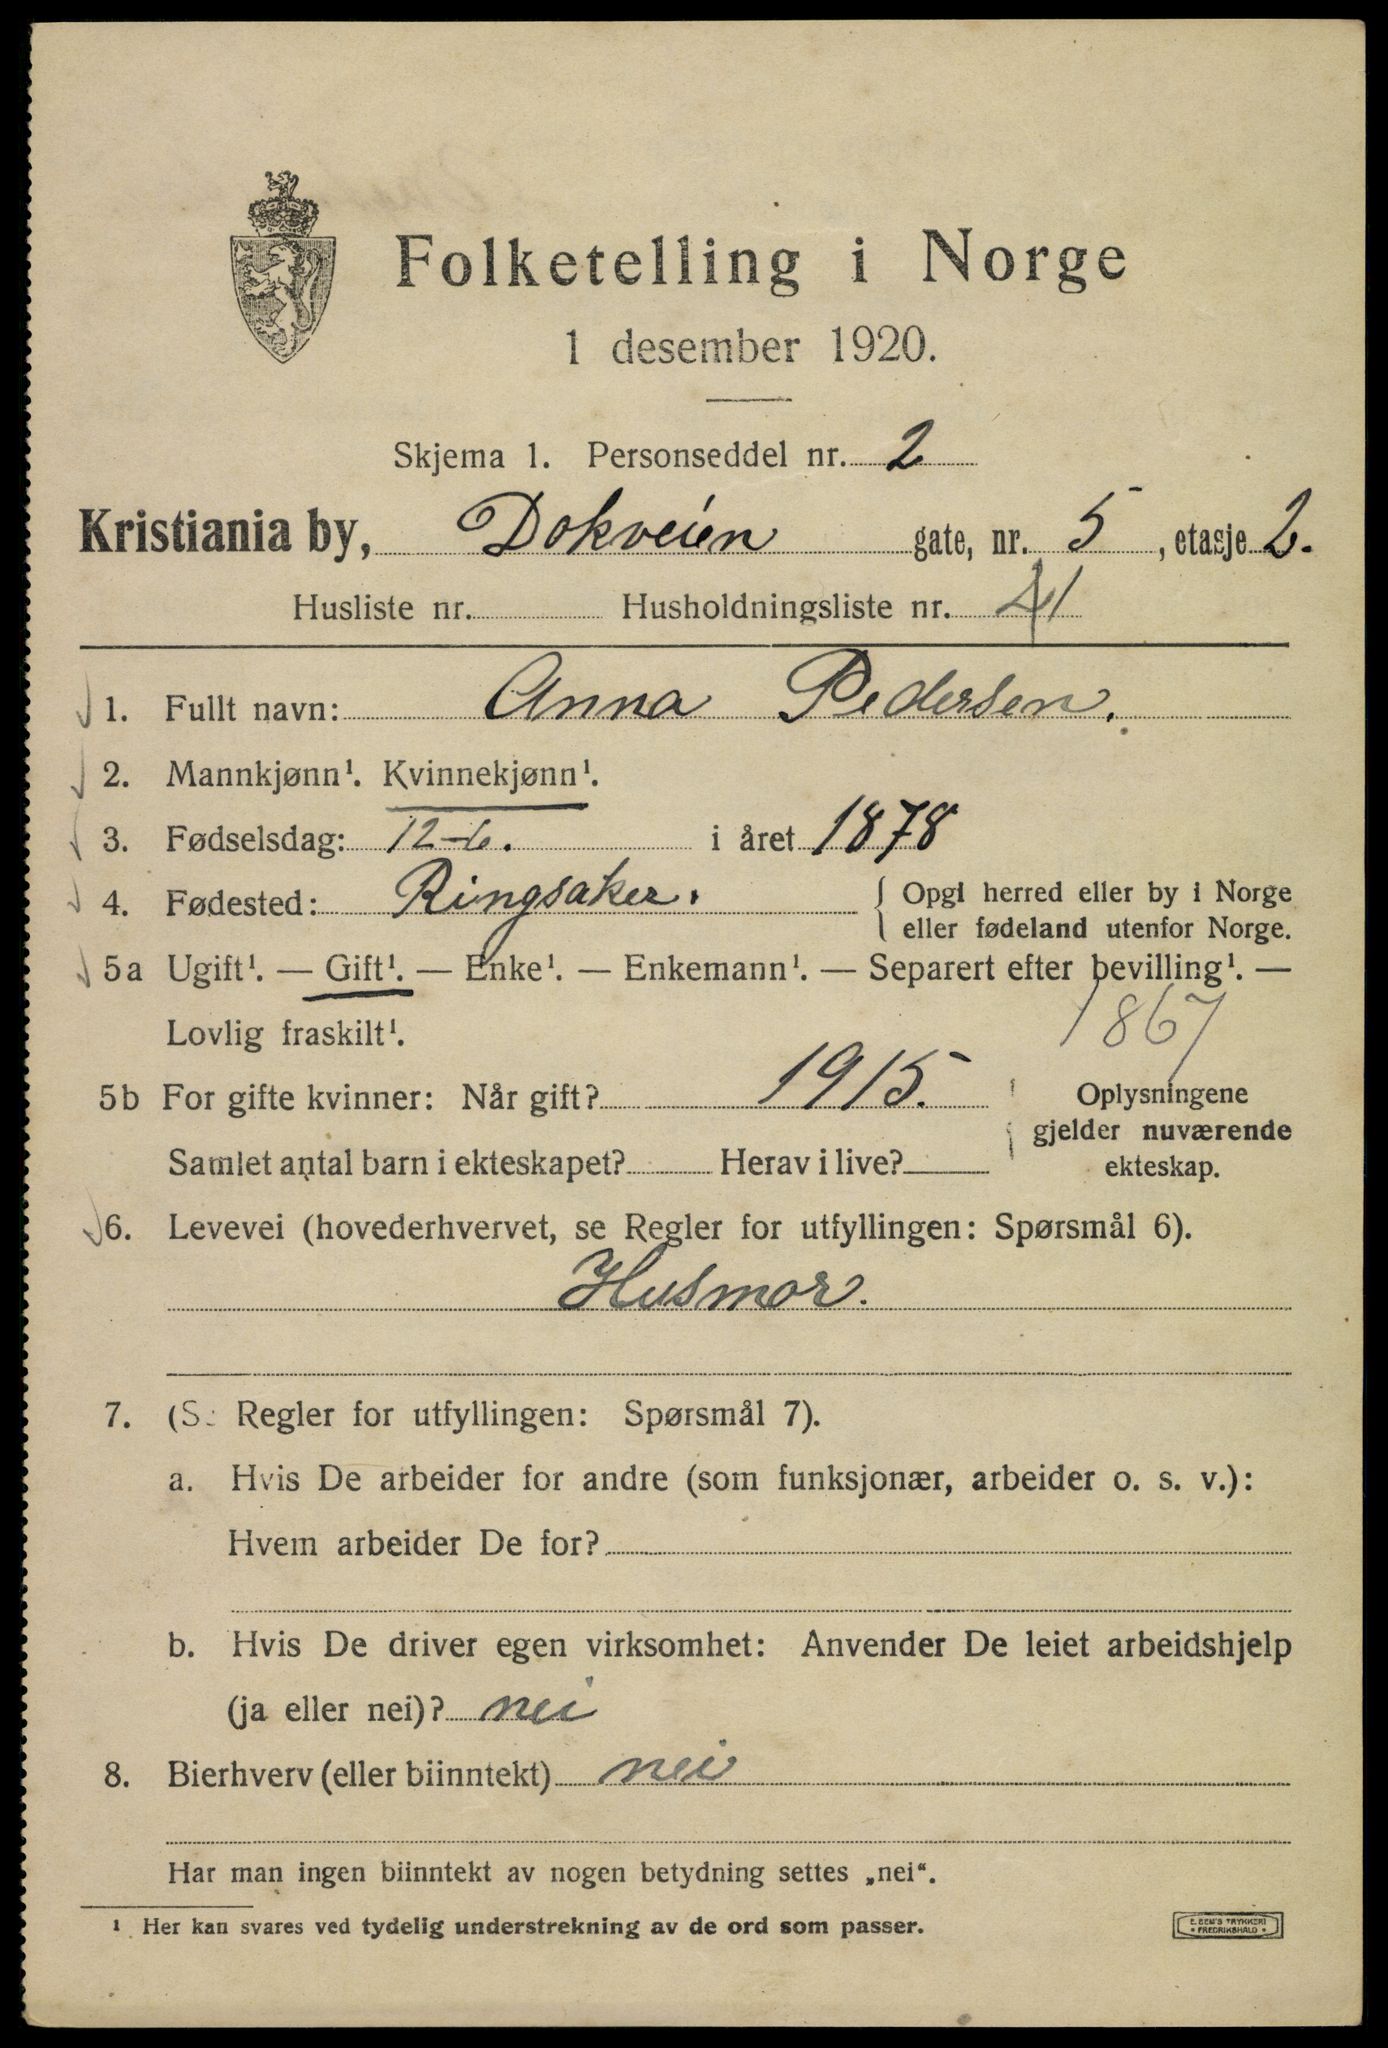 Folketelling i Norge
1 desember 1920.
Skjema 1. Personseddel nr. 2
Kristiania by, Dokveien gate, nr. 5, etasje 2.
Husliste nr. Husholdningsliste nr. 41
1. Fullt navn: Anna Pedersen.
2. Mannkjønn¹. Kvinnekjønn¹.
3. Fødselsdag: 12-6. i året 1878
4. Fødested: Ringsaker. Opgi herred eller by i Norge
eller fødeland utenfor Norge.
5a Ugift¹. — Gift¹. — Enke¹. — Enkemann¹. — Separert efter bevilling¹. —
Lovlig fraskilt¹. 1867
5b For gifte kvinner: Når gift? 1915. Oplysningene
gjelder nuværende
Samlet antal barn i ekteskapet? Herav i live? ekteskap.
6. Levevei (hovederhvervet, se Regler for utfyllingen: Spørsmål 6).
Husmor.
7. (Se Regler for utfyllingen: Spørsmål 7).
a. Hvis De arbeider for andre (som funksjonær, arbeider o. s. v.):
Hvem arbeider De for?
b. Hvis De driver egen virksomhet: Anvender De leiet arbeidshjelp
(ja eller nei)? nei
8. Bierhverv (eller biinntekt) nei
Har man ingen biinntekt av nogen betydning settes „nei“.
¹ Her kan svares ved tydelig understrekning av de ord som passer.
E. SEM'S TRYKKERI
• FREDRIKSHALD •